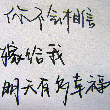 你不会相信
嫁给我
明天有多幸福